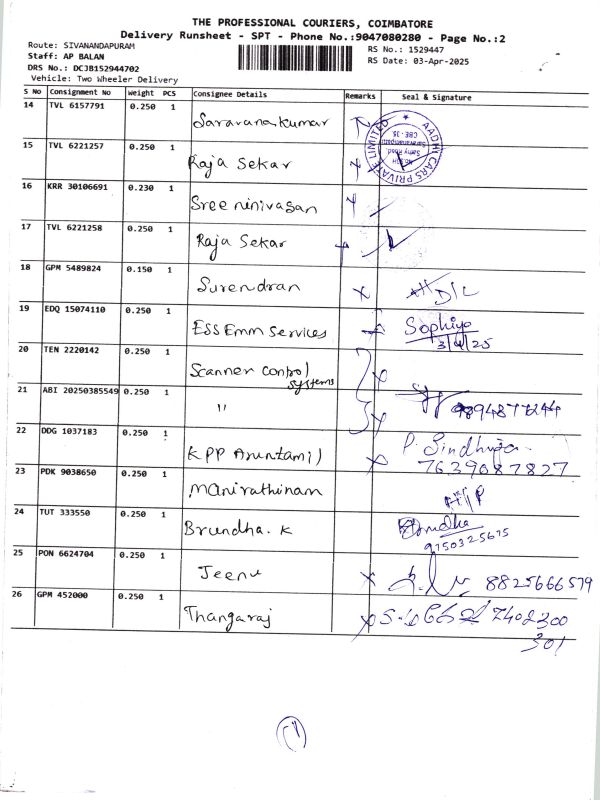 THE PROFESSIONAL COURIERS, COIMBATORE
Delivery Runsheet - SPT - Phone No.:9047080280 - Page No.:2
Route: SIVANANDAPURAM
RS No.: 1529447
Staff: AP BALAN
RS Date: 03-Apr-2025
DRS No.: DCJB152944702
Vehicle: Two Wheeler Delivery
S No Consignment No Weight PCS Consignee Details Remarks Seal & Signature
14 TVL 6157791 0.250 1 Saravanakumar
AADHI CARS PRIVATE LIMITED
15 TVL 6221257 0.250 1 Raja Sekar
16 KRR 30106691 0.230 1 Sree ninivasan
17 TVL 6221258 0.250 1 Raja Sekar
18 GPM 5489824 0.150 1 Surendran
19 EDQ 15074110 0.250 1 ESS Emm Services Sophiya
3/4/25
20 TEN 2220142 0.250 1 Scanner Control
systems
21 ABI 20250385549 0.250 1 "
22 DDG 1037183 0.250 1 KPP Aruntamil P. Sindhuja
7639087827
23 PDK 9038650 0.250 1 Manirathinam
24 TUT 333550 0.250 1 Brundha. K
9750325675
25 PON 6624704 0.250 1 Jeenu 8825666579
26 GPM 452000 0.250 1 Thangaraj 7402300
301